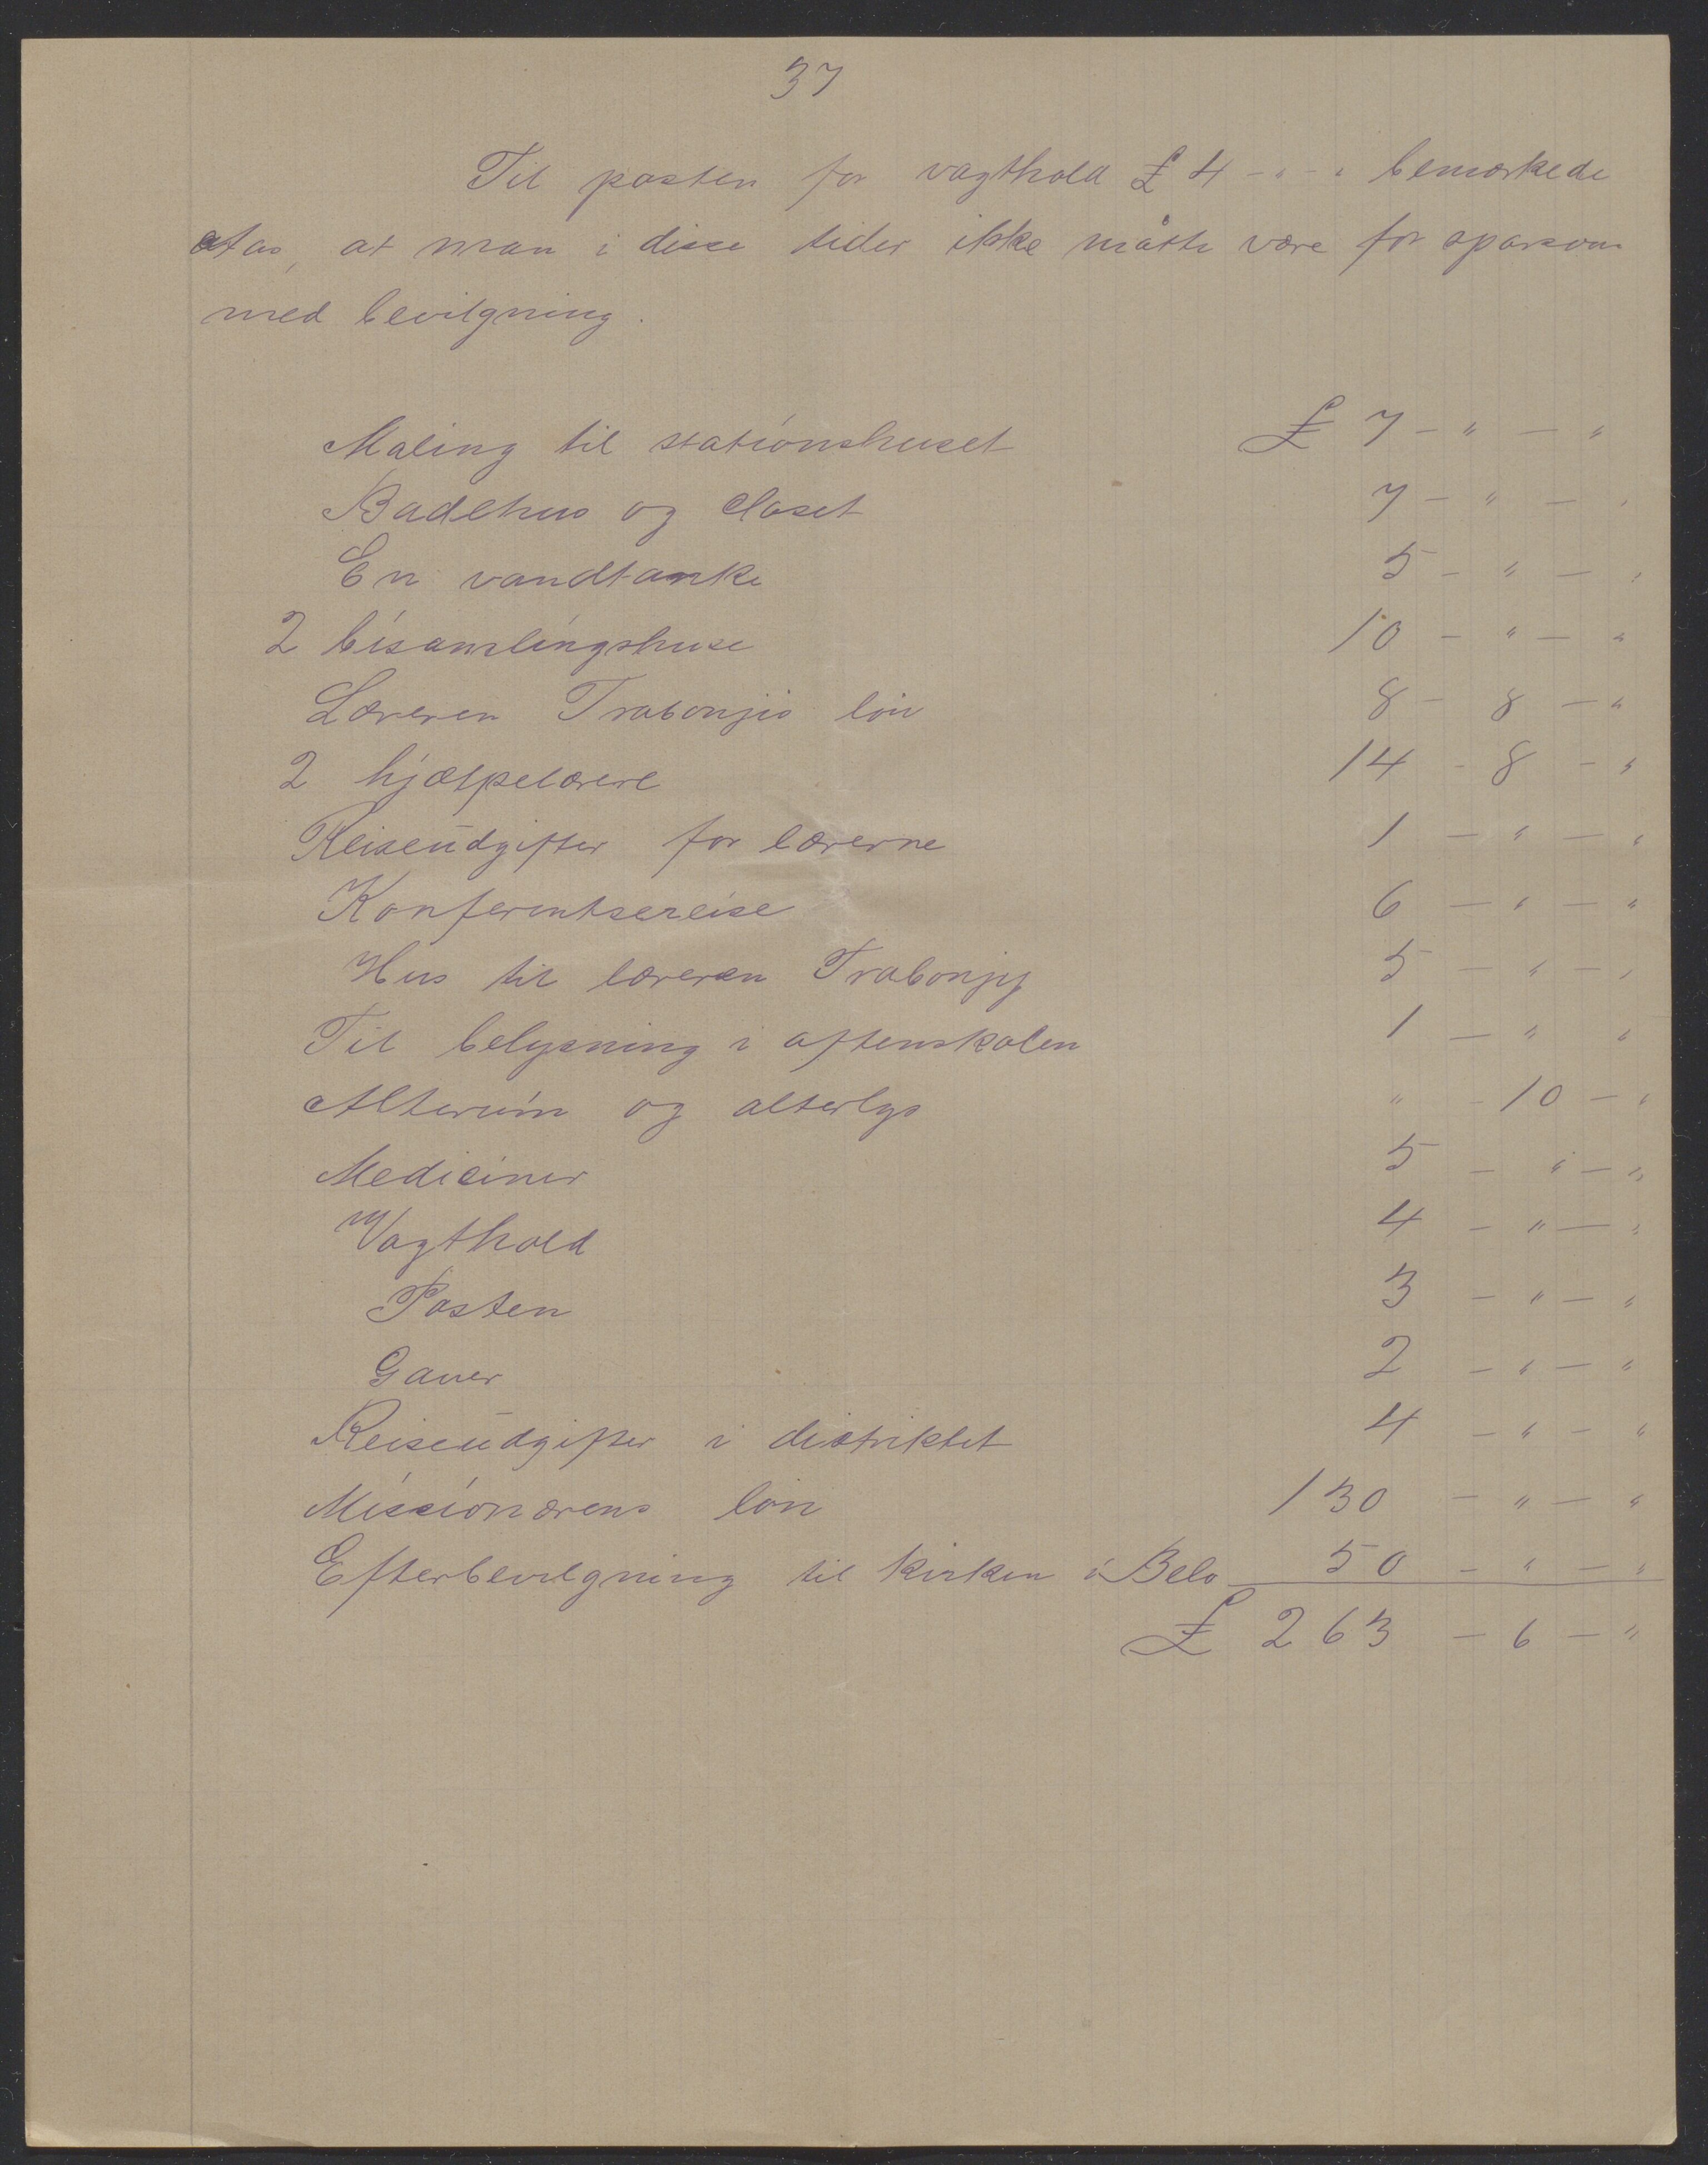 37
Til posten for vagthold £ 4 - " - " bemærkede
Aas, at man i disse tider ikke måtte være for sparsom
med bevilgning.
Maling til stationshuset £ 7 - " - "
Badehus og closet 7 - " - "
En vandtanke 5 - " - "
2 bisamlingshuse 10 - " - "
Læreren Trabonjis løn 8 - 8 - "
2 hjælpelærere 14 - 8 - "
Reiseudgifter for lærerne 1 - " - "
Konferentsereise 6 - " - "
Hus til læreren Trabonjy 5 - " - "
Til belysning i aftenskolen 1 - " "
Altervin og alterlys " - 10 - "
Mediciner 5 - " - "
Vagthold 4 - " - "
Posten 3 - " - "
Gaver 2 - " - "
Reiseudgifter i distriktet 4 - " - "
Missionærens løn 130 - " - "
Efterbevilgning til kirken i Belo 50 - " - "
£ 263 - 6 - "